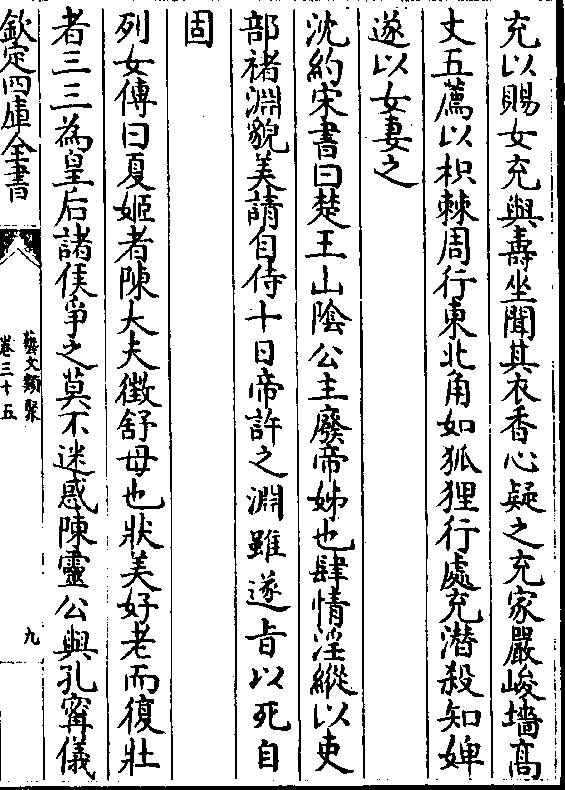 充以賜女充與壽坐聞其衣香心疑之充家嚴峻墻高
丈五薦以枳棘周行東北角如狐狸行處充潜殺知婢
遂以女妻之
沈約宋書曰楚王山陰公主廢帝姊也肆情淫縱以吏
部褚淵貌美請自侍十日帝許之淵雖遂旨以死自
固
列女傳曰夏姬者陳大夫徵舒母也狀美好老而復壯
者三三為皇后諸侯爭之莫不迷惑陳靈公與孔甯儀
欽定四庫全書
藝文類聚
卷三十五
九